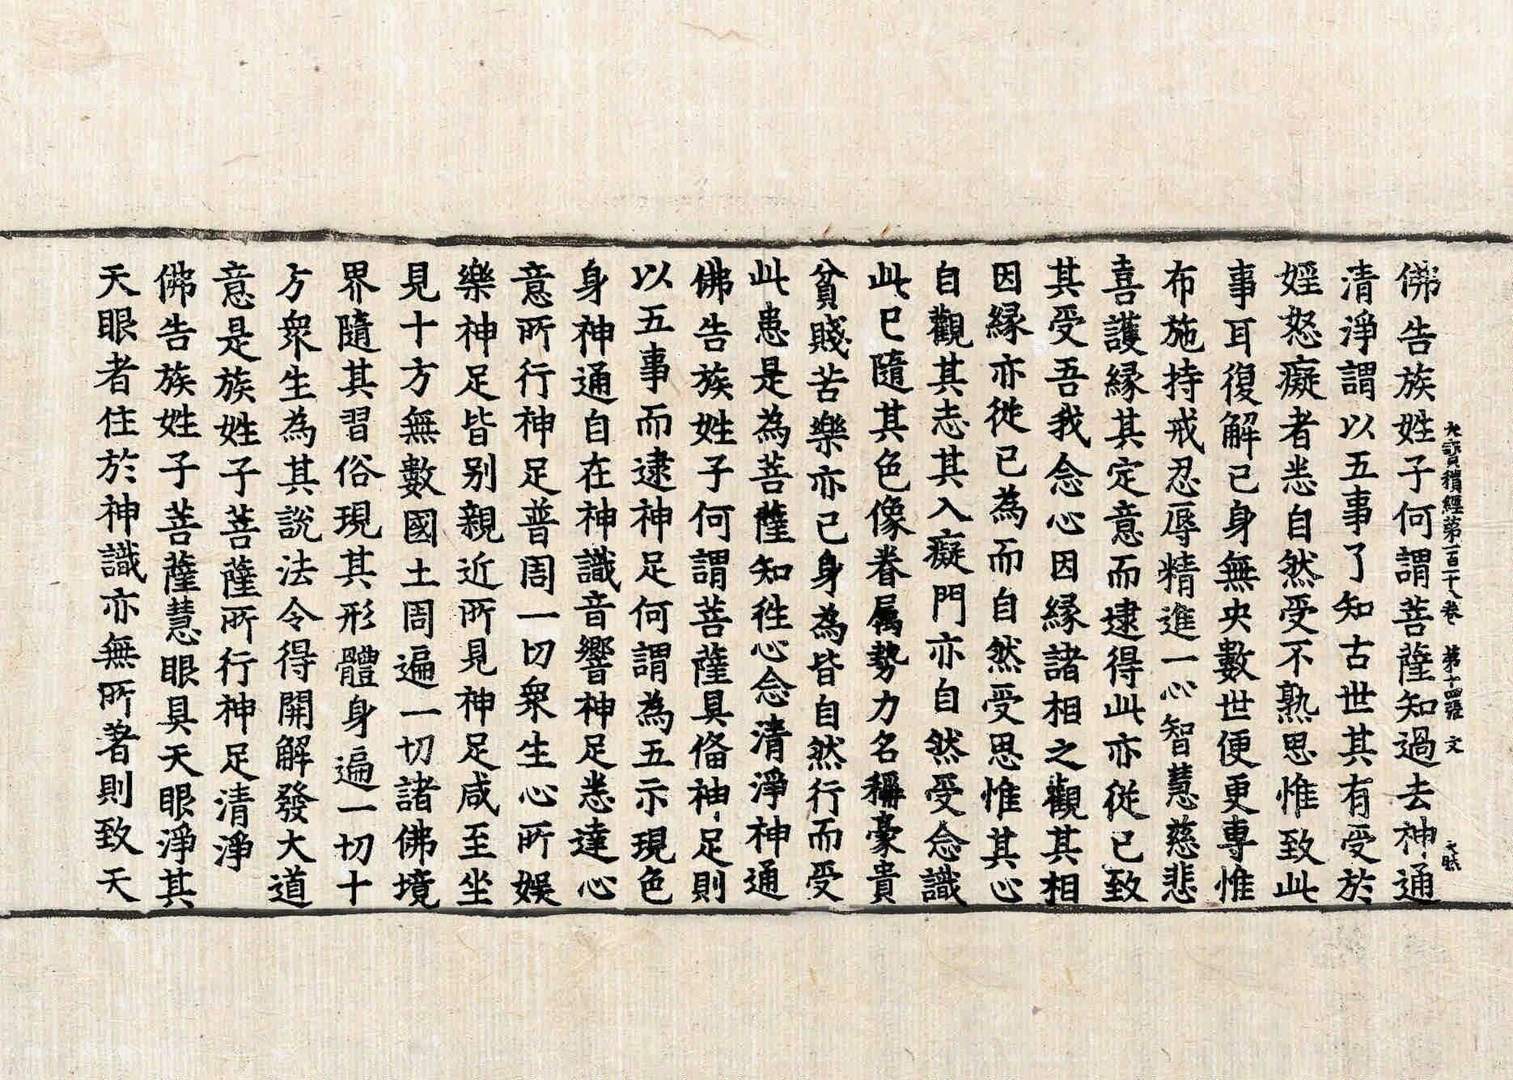 大寳積經第一百一十八卷 第十四張 文
佛告族姓子何謂菩薩知過去神通
清淨謂以五事了知古世其有受於
婬怒癡者悉自然受不熟思惟致此
事耳復解己身無央數世便更專惟
布施持戒忍辱精進一心智慧慈悲
喜護緣其定意而逮得此亦從已致
其受吾我念心因緣諸相之觀其相
因緣亦從已為而自然受思惟其心
自觀其志其入癡門亦自然受念識
此已隨其色像眷属勢力名稱豪貴
貧賤苦樂亦已身為皆自然行而受
此患是為菩薩知徃心念清淨神通
佛告族姓子何謂菩薩具俻神足則
以五事而逮神足何謂為五示現色
身神通自在神識音響神足悉達心
意所行神足普周一切衆生心所娛
樂神足皆别親近所見神足咸至坐
見十方無數國土周遍一切諸佛境
界隨其習俗現其形體身遍一切十
方衆生為其說法令得開解發大道
意是族姓子菩薩所行神足清淨
佛告族姓子菩薩慧眼具天眼淨其
天眼者住於神識亦無所著則致天